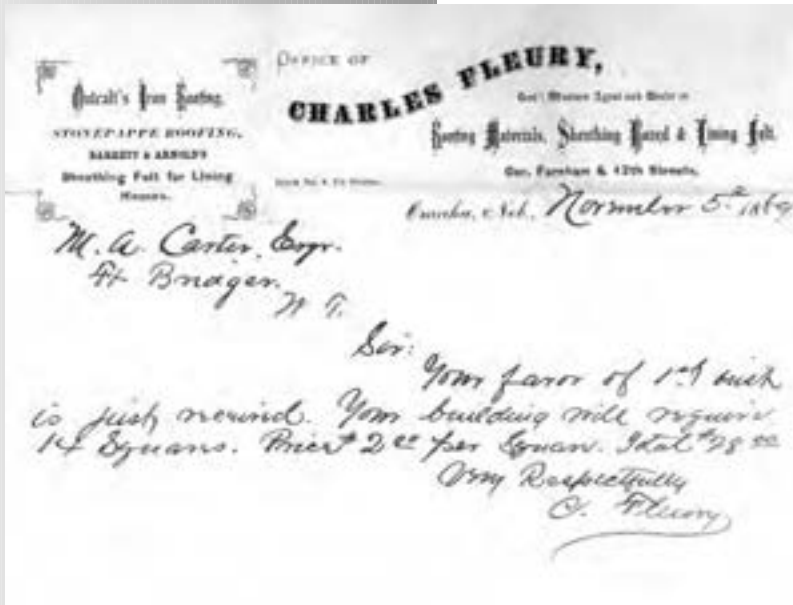 Outcalt's Iron Roofing,
STONEPAPPE ROOFING,
BARRETT & ARNOLD'S
Sheathing Felt for Lining
Houses.
OFFICE OF
CHARLES FLEURY,
Gen'l Western Agent and Dealer in
Roofing Materials, Sheathing Board & Lining Felt.
Cor. Farnham & 12th Streets,
Omaha, Neb., November 5th 1869
M. A. Carter, Esqr.
Ft Bridger.
W T.
Sir:
Your favor of 1st inst
is just received. Your building will require
14 Squares. Price $2 00 per Square. Total $28 00
Very Respectfully
C. Fleury